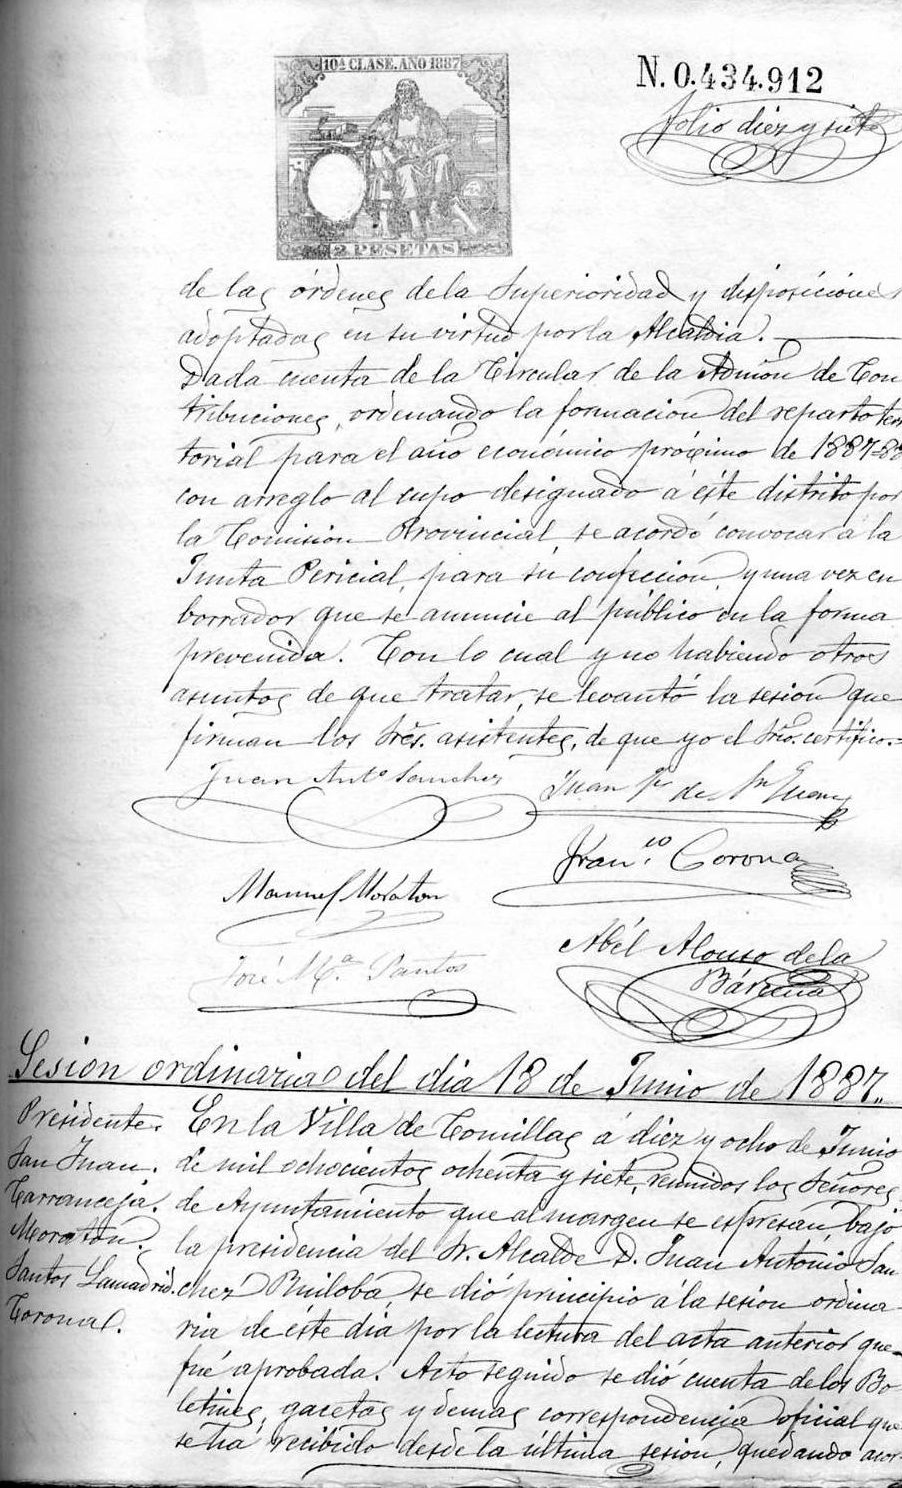 10ª CLASE. AÑO 1887
N. 0.434.912
folio diez y siete
2 PESETAS
de las órdenes de la Superioridad y disposiciones
adoptadas en su virtud por la Alcaldia.
Dada cuenta de la Circular de la Admon de Con
tribuciones, ordenando la formacion del reparto terri
torial para el año económico próximo de 1887-88
con arreglo al cupo designado á éste distrito por
la Comision Provincial, se acordó convocar á la
Junta Pericial, para su confeccion, y una vez en
borrador que se anuncie al público en la forma
prevenida. Con lo cual y no habiendo otros
asuntos de que tratar, se levantó la sesion que
firman los Sres. asistentes, de que yo el Srio. certifico.=
Juan Anto Sanchez
Juan
Franco. Corona
Manuel Moraton
José Mª. Santos
Abél Alonso de la
Bárcena
Sesion ordinaria del dia 18 de Junio de 1887.
Presidente.
San Juan.
Carranceja.
Moratón.
Santos Lamadrid.
Corona.
En la Villa de Comillas á diez y ocho de Junio
de mil ochocientos ochenta y siete, reunidos los Señores
de Ayuntamiento que al margen se espresan, bajo
la presidencia del Sr. Alcalde D. Juan Antonio San
chez Ruiloba se dió principio á la sesion ordina
ria de éste dia por la lectura del acta anterior que
fué aprobada. Acto seguido se dió cuenta de los Bo
letines, gacetas y demas correspondencia oficial que
se ha recibido desde la última sesion, quedando acor-